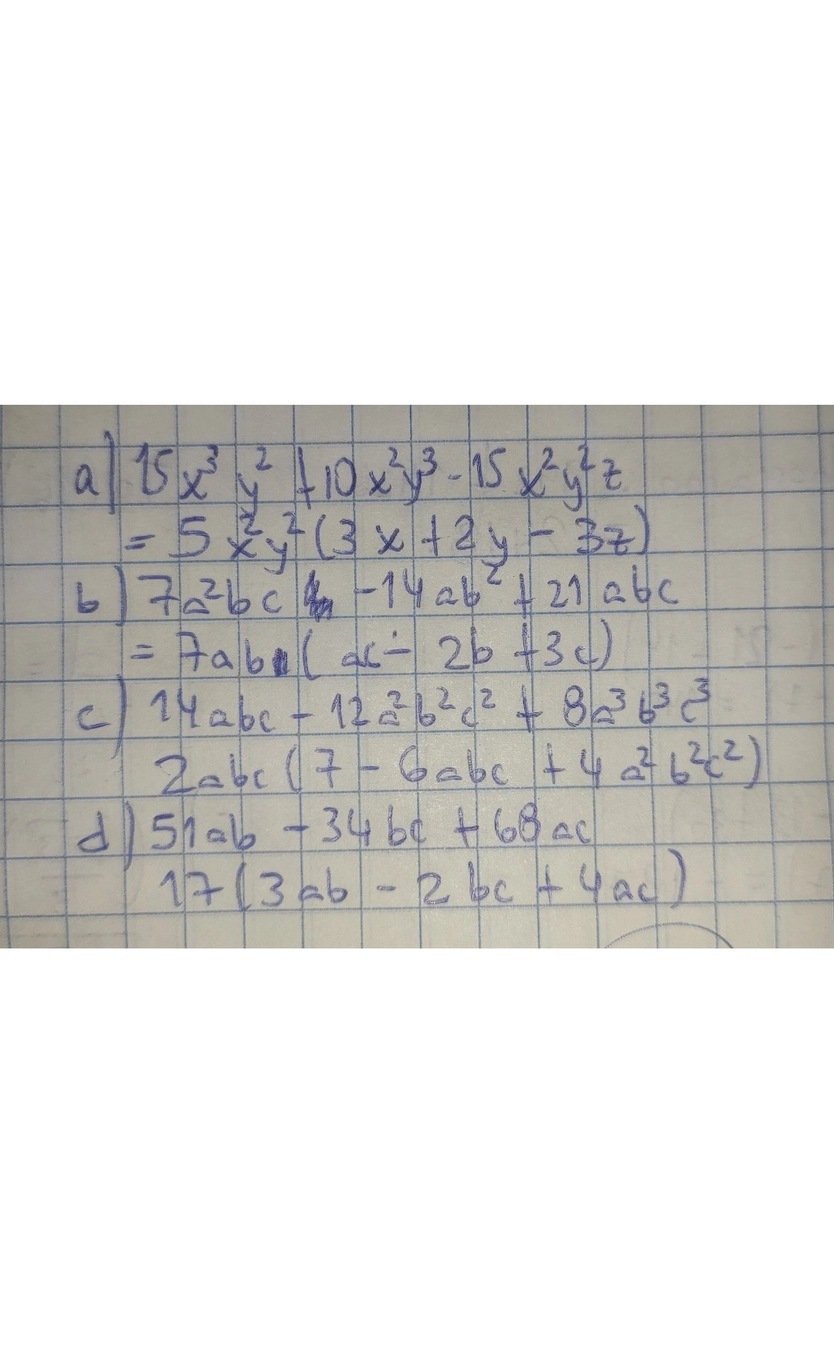 a) 15x³y² + 10x²y³ - 15x²y²z
= 5x²y² (3x + 2y - 3z)
b) 7a²bc - 14ab² + 21abc
= 7ab (ac - 2b + 3c)
c) 14abc - 12a²b²c² + 8a³b³c³
2abc (7 - 6abc + 4a²b²c²)
d) 51ab - 34bc + 68ac
17 (3ab - 2bc + 4ac)